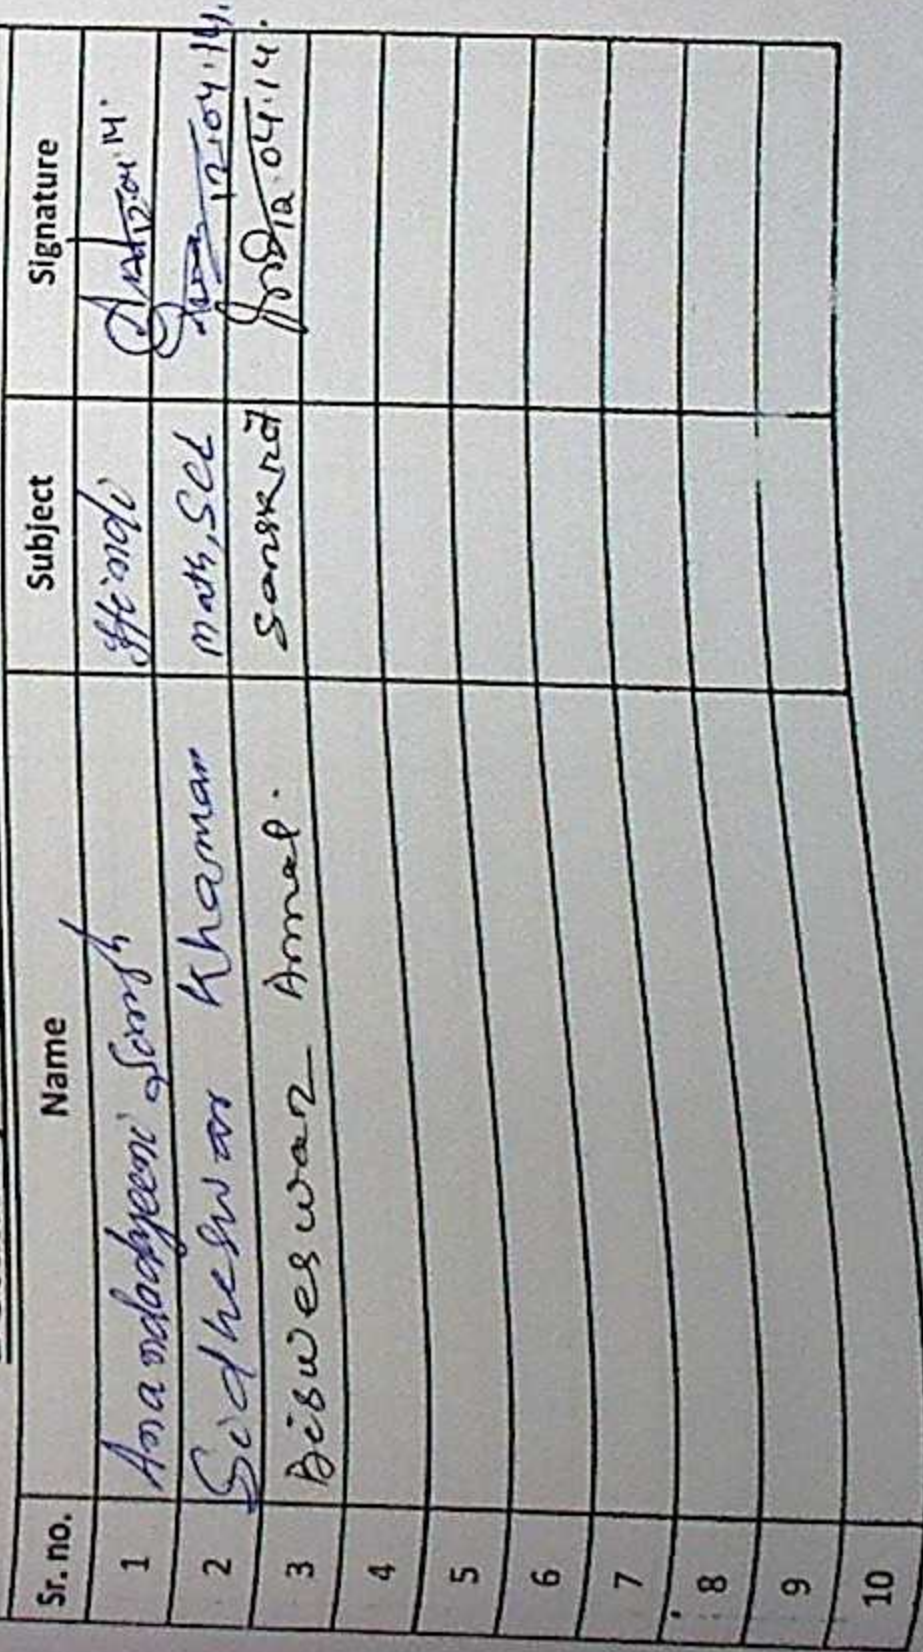 Sr. no. Name Subject Signature
1 Hindi 12.04.14.
2 Sidheswar Khamari Math, Sci 12.04.14.
3 Bisweswar Sanskrit 12.04.14.
4
5
6
7
8
9
10